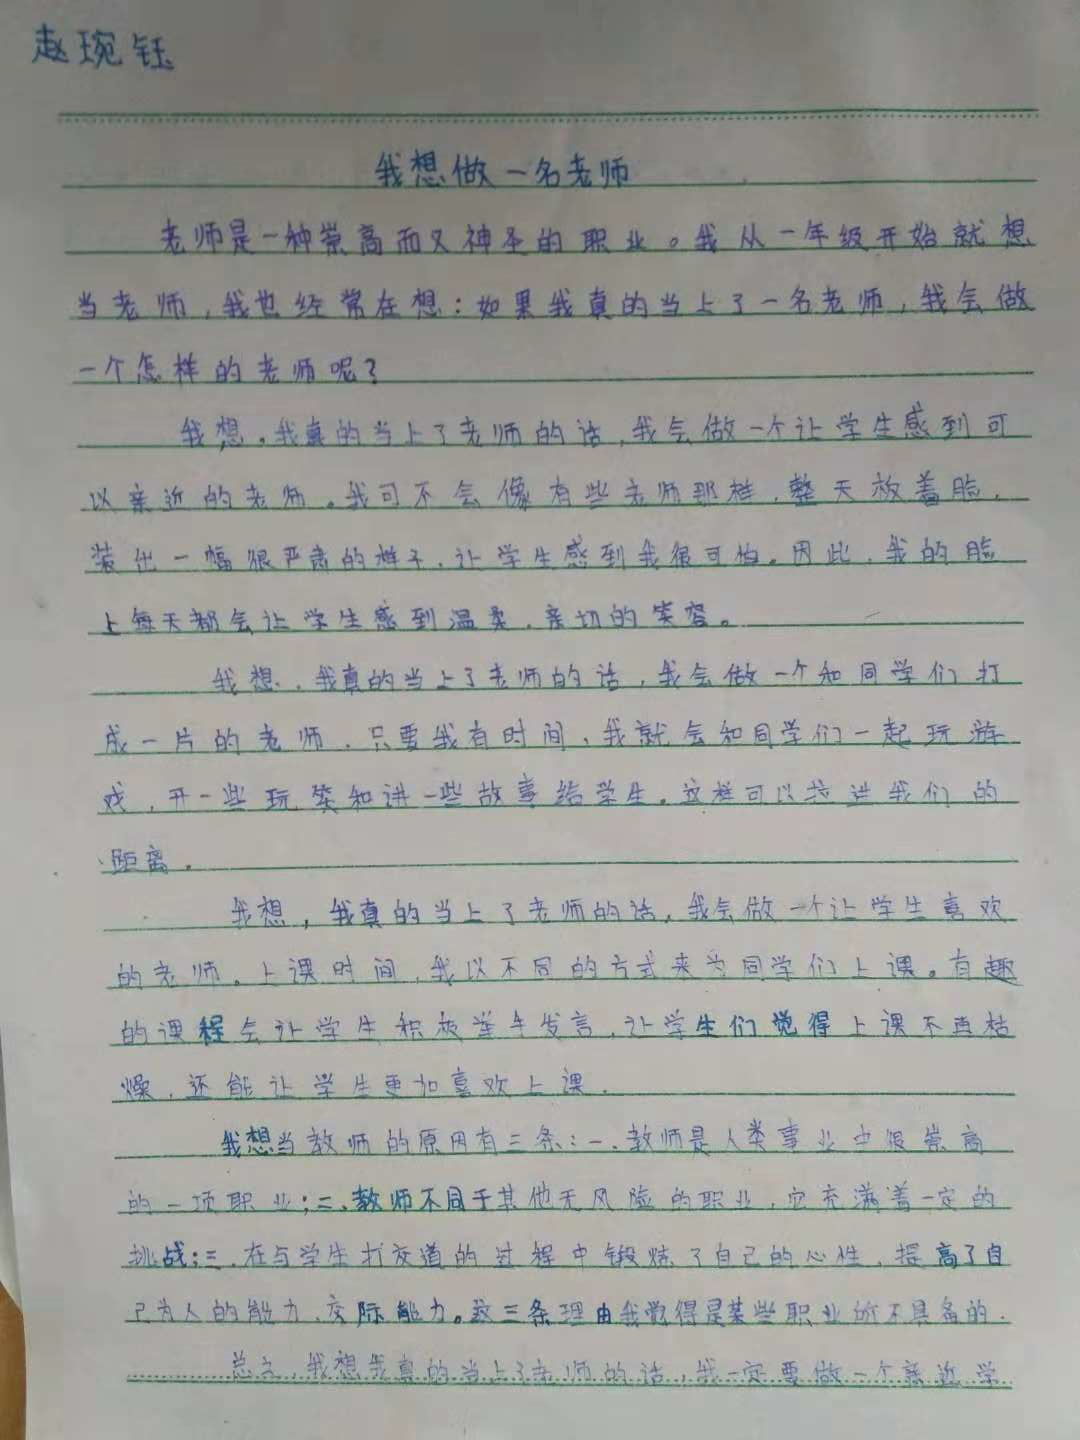 赵琬钰
我想做一名老师
老师是一种崇高而又神圣的职业。我从一年级开始就想
当老师,我也经常在想:如果我真的当上了一名老师,我会做
一个怎样的老师呢?
我想,我真的当上了老师的话,我会做一个让学生感到可
以亲近的老师。我可不会像有些老师那样,整天放着脸,
装出一幅很严肃的样子,让学生感到我很可怕。因此,我的脸
上每天都会让学生感到温柔、亲切的笑容。
我想,我真的当上了老师的话,我会做一个和同学们打
成一片的老师,只要我有时间,我就会和同学们一起玩游
戏,开一些玩笑和讲一些故事给学生。这样可以拉进我们的
距离。
我想,我真的当上了老师的话,我会做一个让学生喜欢
的老师。上课时间,我以不同的方式来为同学们上课。有趣
的课程会让学生积极举手发言,让学生们觉得上课不再枯
燥,还能让学生更加喜欢上课。
我想当教师的原因有三条:一、教师是人类事业中很崇高
的一项职业;二、教师不同于其他无风险的职业,它充满着一定的
挑战;三、在与学生打交道的过程中锻炼了自己的心性,提高了自
己为人的能力、交际能力。这三条理由我觉得是某些职业所不具备的。
总之,我想我真的当上了老师的话,我一定要做一个亲近学